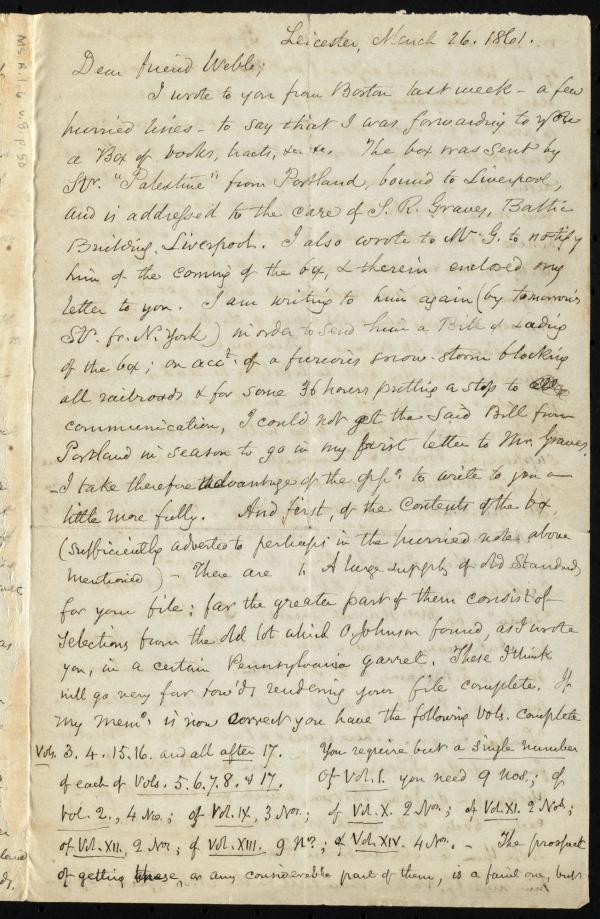 Leicester, March 26. 1861.
Dear friend Webb;
I wrote to you from Boston last week - a few
hurried lines - to say that I was forwarding to you
a Box of books, tracts, &c &c. The box was sent by
Str. "Palestine" from Portland, bound to Liverpool,
and is addressed to the care of S. R. Graves, Baltic
Building, Liverpool. I also wrote to Mr G. to notify
him of the coming of the box, & therein enclosed my
letter to you. I am writing to him again (by tomorrow's
Str. fr. N. York) in order to send him a Bill of Lading
of the box; on acct. of a furious snow-storm blocking
all railroads & for some 36 hours putting a stop to
communication, I could not get the said Bill from
Portland in season to go in my first letter to Mr. Graves.
- I take therefore advantage of the opp'y to write to you a
little more fully. And first, of the contents of the box,
(sufficiently adverted to perhaps in the hurried note above
mentioned) - There are 1. A large supply of old Standards
for your file; far the greater part of them consist of
selections from the old lot which O. Johnson found, as I wrote
you, in a certain Pennsylvania garret. These I think
will go very far tow'ds rendering your file complete. If
my mem'o is now correct you have the following Vols. complete
Vols. 3. 4. 15. 16. and all after 17. You require but a single number
of each of Vols. 5. 6. 7. 8. & 17. Of Vol. I. you need 9 nos.; of
Vol. 2., 4 Nos.; of Vol. IX, 3 Nos.; of Vol. X. 2 Nos.; of Vol. XI. 2 Nos;
of Vol. XII, 2 Nos; of Vol. XIII. 9 Nos; of Vol. XIV. 4 Nos. - The prospect
of getting these, or any considerable part of them, is a faint one, but
Ms A.1.2 v.8 p.50